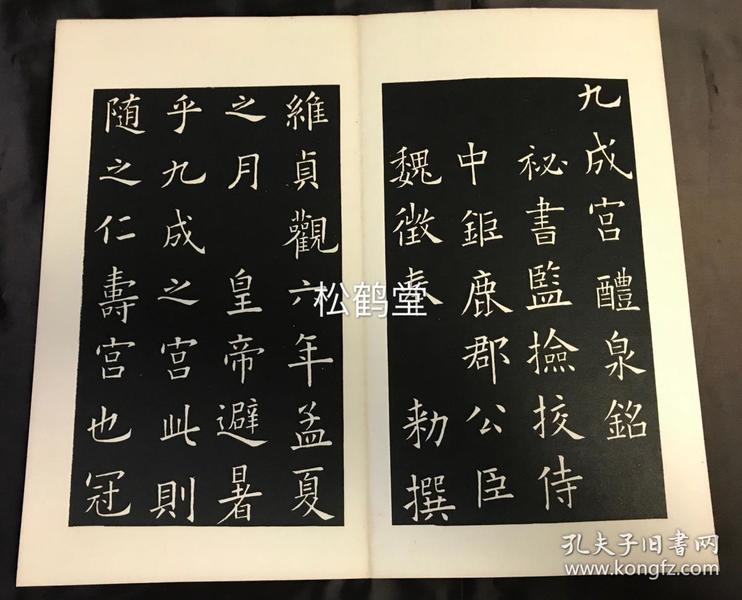 九成宮醴泉銘
祕書監撿挍侍
中鉅鹿郡公臣
魏徵奉 勑撰
維貞觀六年孟夏
之月 皇帝避暑
乎九成之宮此則
随之仁壽宮也冠
松鹤堂
孔夫子旧书网
www.kongfz.com